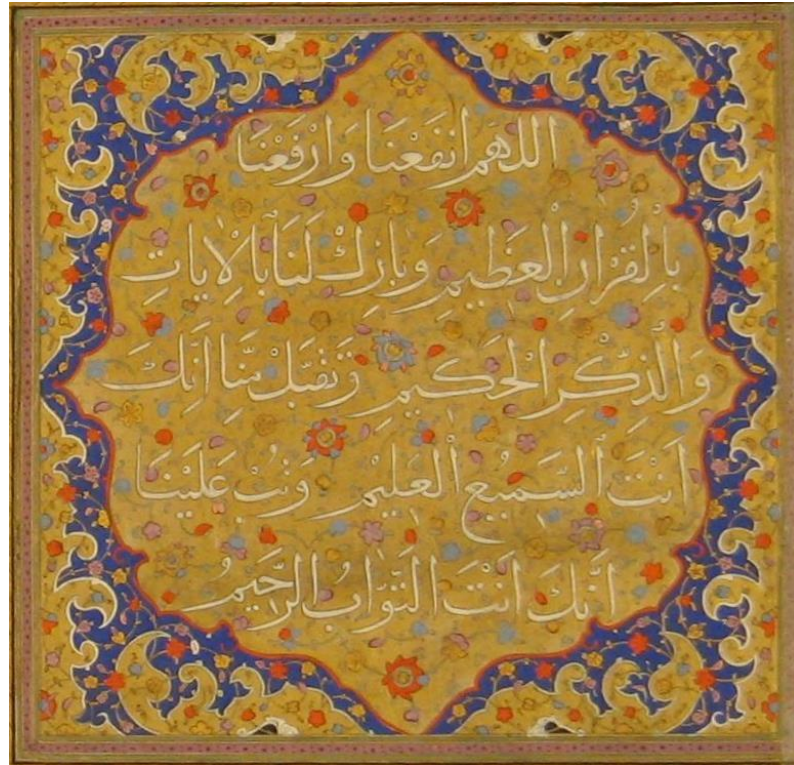 اللهم انْفَعْنَا وَارْفَعْنَا
بِالْقُرْآنِ الْعَظِيمِ وَبَارِكْ لَنَا بِالْآيَاتِ
وَالذِّكْرِ الْحَكِيمِ وَتَقَبَّلْ مِنَّا اِنَّكَ
اَنْتَ السَّمِيعُ الْعَلِيمُ وَتُبْ عَلَيْنَا
اِنَّكَ اَنْتَ التَّوَّابُ الرَّحِيمُ